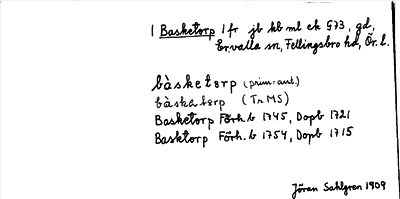 1 Basketorp 1 fr jb kb ml ek §73, gd,
Ervalla sn, Fellingsbro hd, Ör. l.
bàsketorp (prim.-ant.)
bàskatorp (Tr MS)
Basketorp Förh. b 1745, Dopb 1721
Basktorp Förh. b 1754, Dopb 1715
Jöran Sahlgren 1909